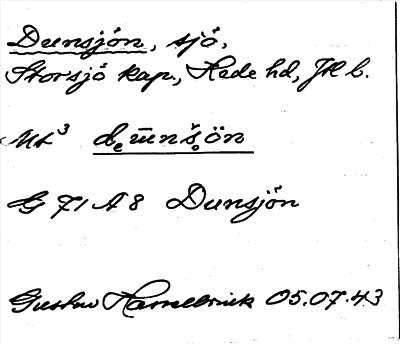 Dunsjön, sjö,
Storsjö kap., Hede hd, Jtl l.
Ut³
G 71 A 8 Dunsjön
Gustav Hasselbrink 05.07.43